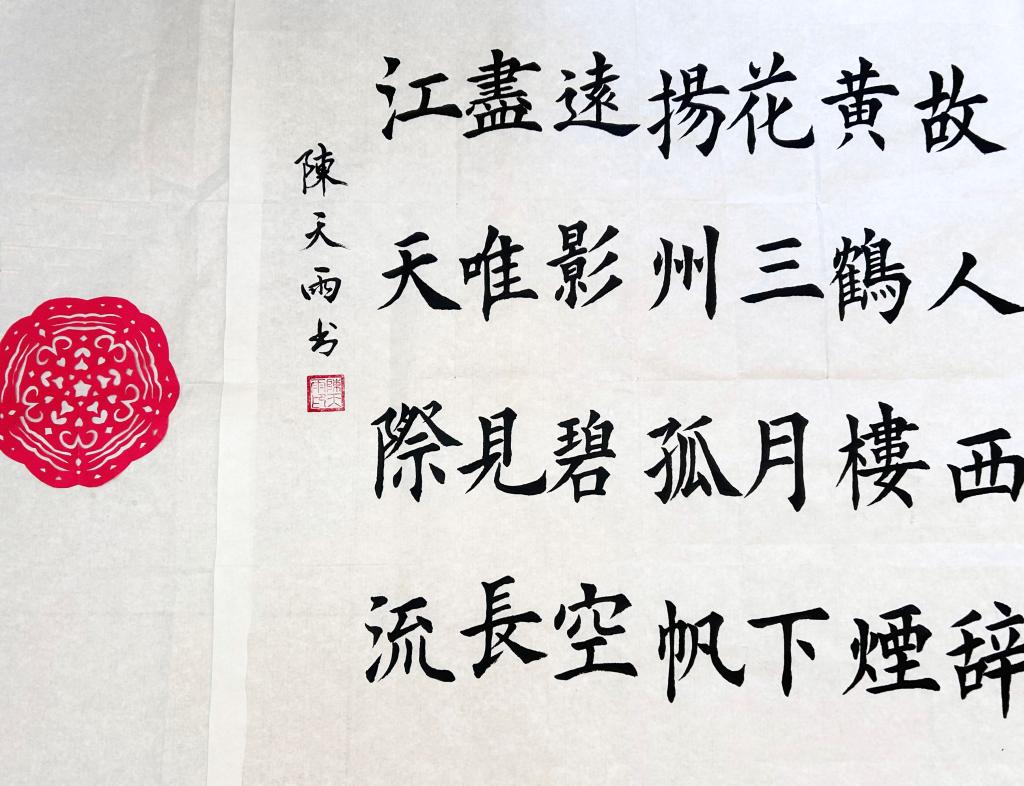 故人西辞
黄鶴樓煙
花三月下
揚州孤帆
遠影碧空
盡唯見長
江天際流
陳天雨书
陳天雨印